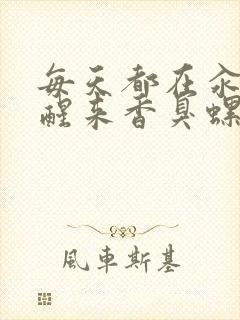 每天都在汆
醒来香臭螺
風車斯基